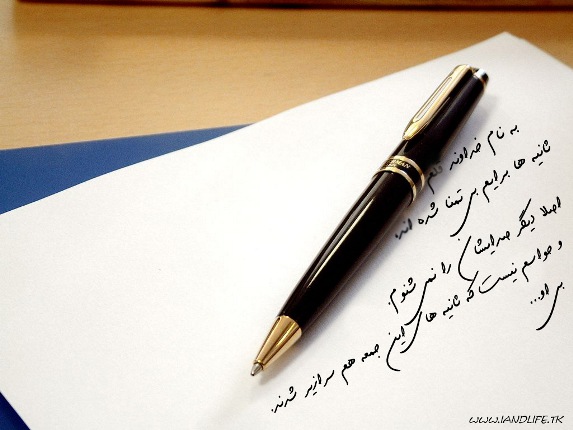 به نام خداوند قلم
ثانیه ها برایم بی تمنا شده اند.
اصلا دیگر صدایشان را نمی شنوم.
و حواسم نیست که ثانیه های این جمعه هم سرازیر شدند.
بی او...
WWW.IANDLIFE.TK